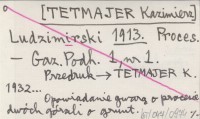 [TETMAJER Kazimierz]
Ludzimirski 1913. Proces.
— Gaz. Podh. 1, nr 1.
Przedruk → TETMAJER K.
1932...
Opowiadanie gwarą o procesie
dwóch górali o grunt.